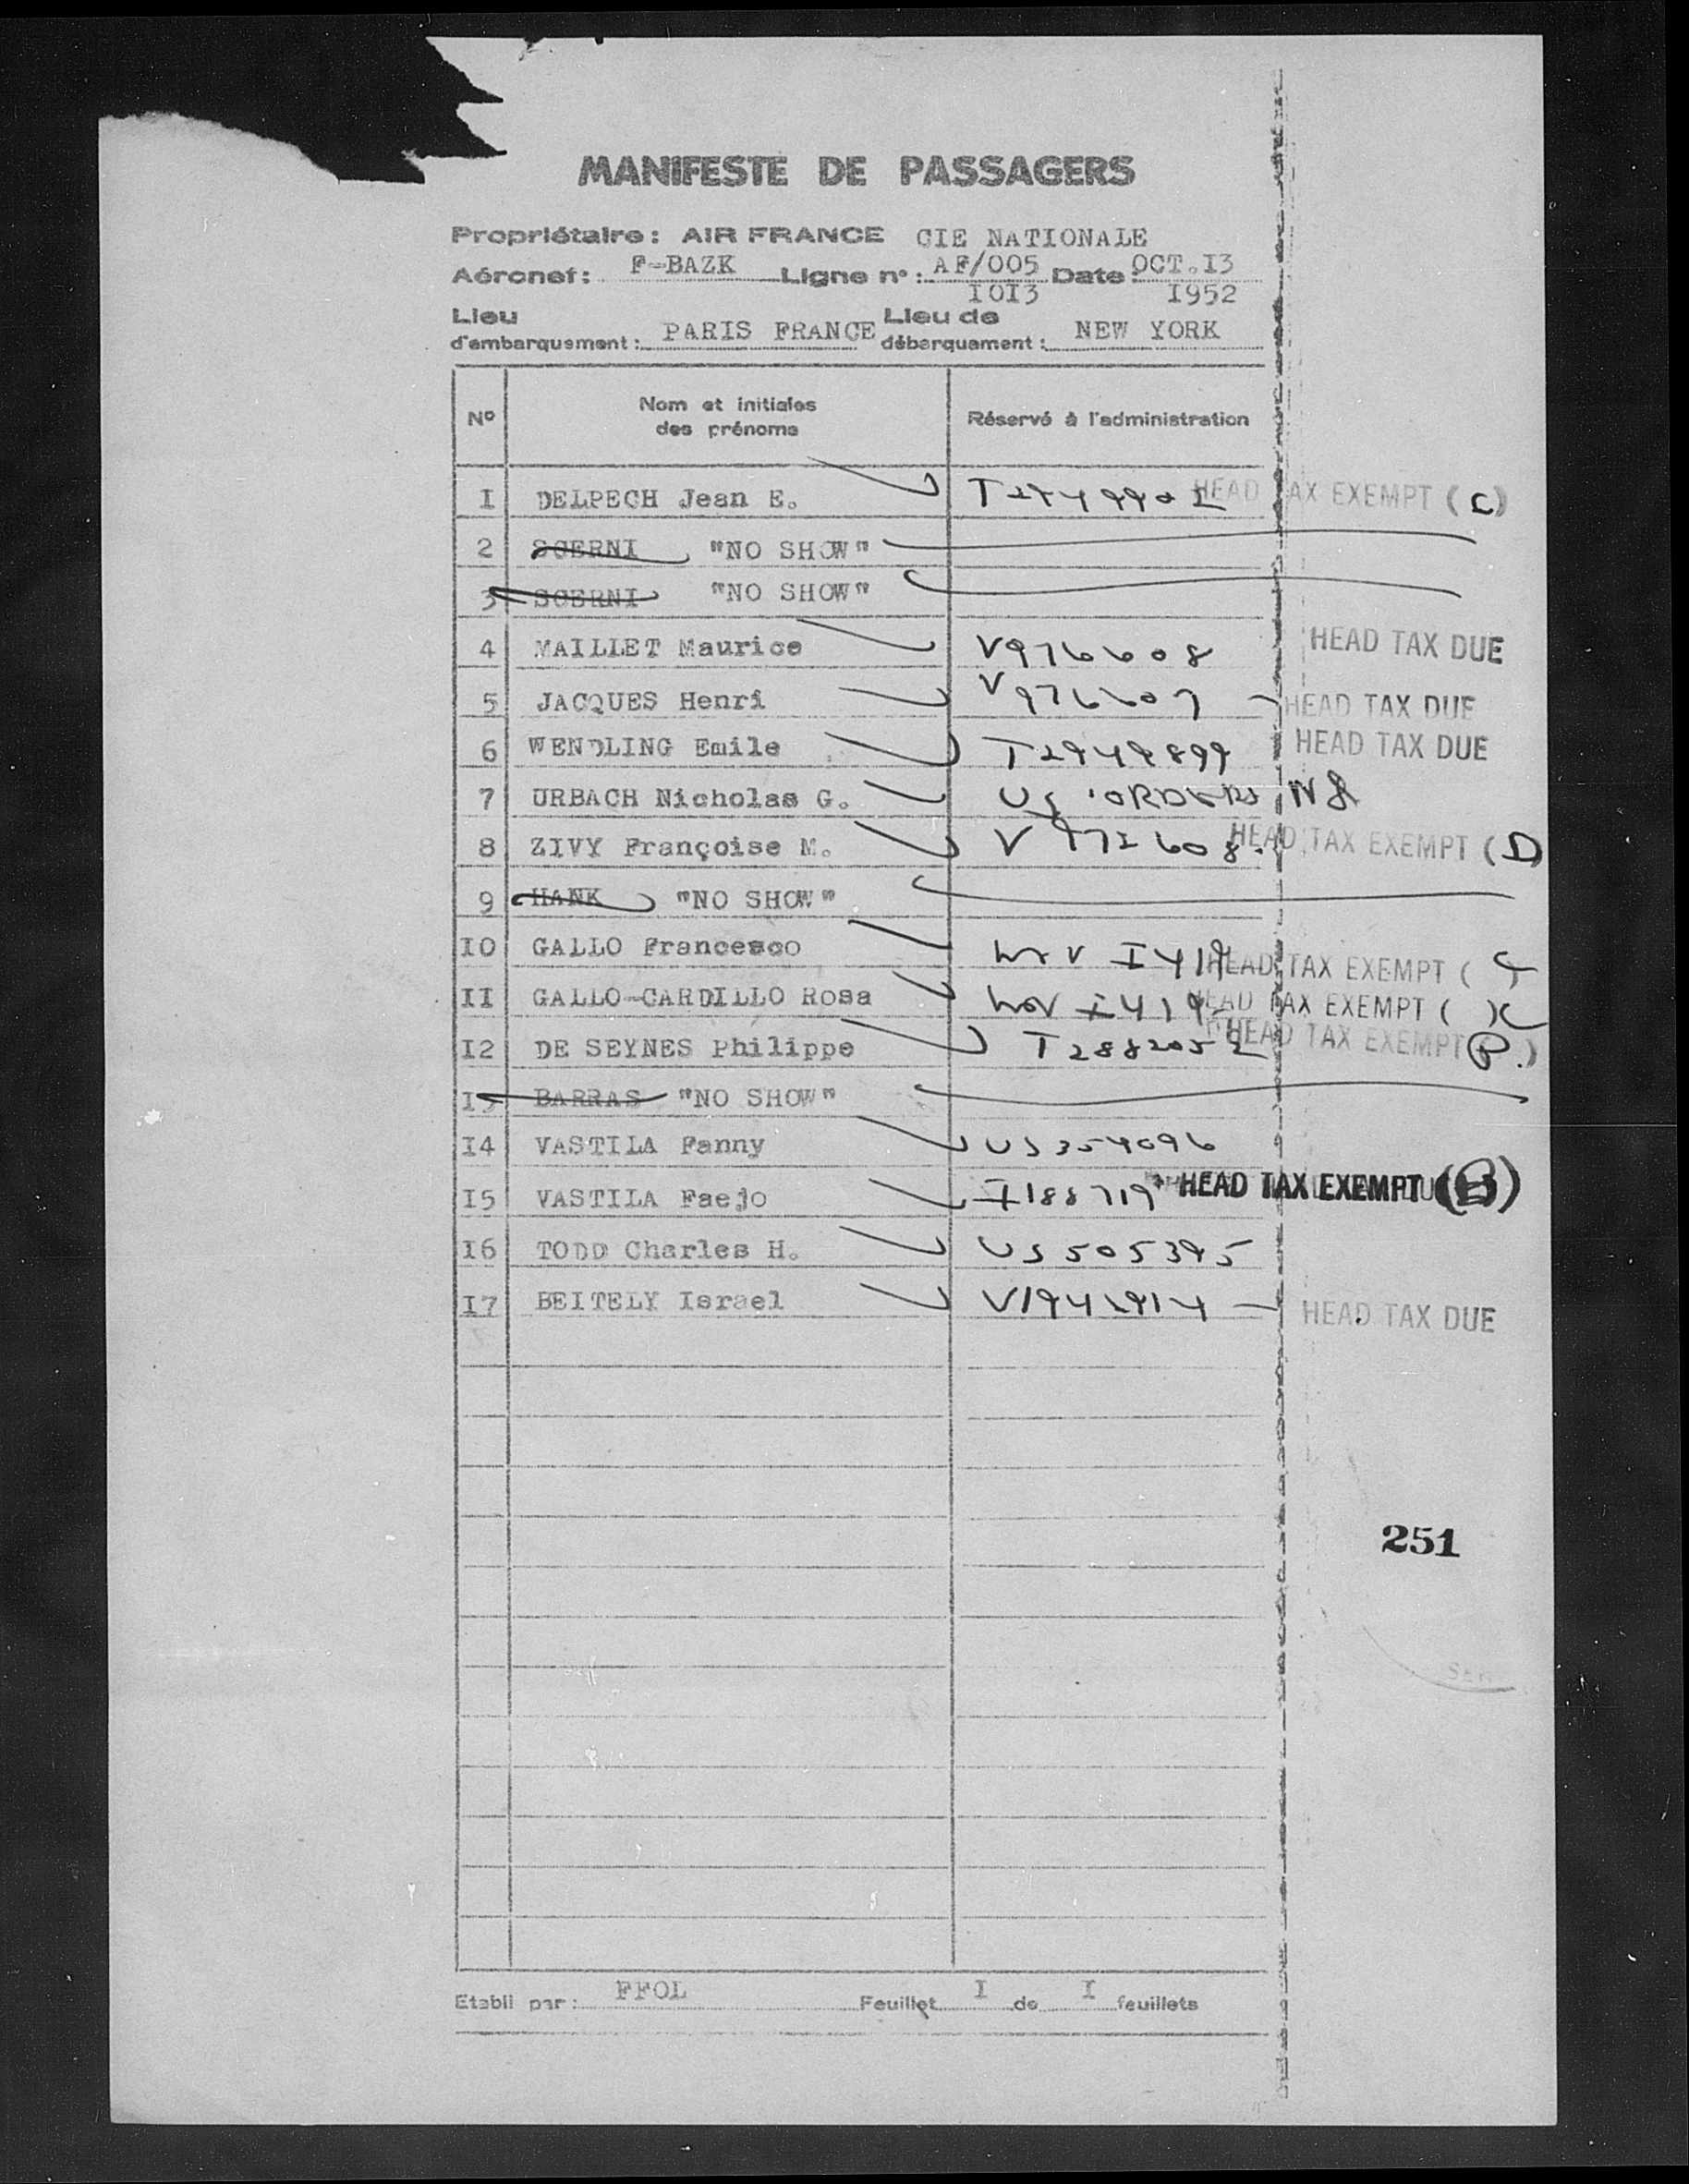 MANIFESTE DE PASSAGERS
Propriétaire : AIR FRANCE CIE NATIONALE
Aéronef : F-BAZK Ligne n° : AF/005 Date : OCT.I3
I0I3 I952
Lieu d'embarquement : PARIS FRANCE Lieu de débarquament : NEW YORK
N° Nom et initiales des prénoms Réservé à l'administration
I DELPECH Jean E. HEAD TAX EXEMPT (C)
2 SCERNI "NO SHOW"
3 SCERNI "NO SHOW"
4 MAILLET Maurice V976608 HEAD TAX DUE
5 JACQUES Henri V976607 HEAD TAX DUE
6 WENDLING Emile T2949899 HEAD TAX DUE
7 URBACH Nicholas G. US ORDERS
8 ZIVY Françoise M. V972608 HEAD TAX EXEMPT (D)
9 HANK "NO SHOW"
I0 GALLO Francesco HEAD TAX EXEMPT (
II GALLO-CARDILLO Rosa HEAD TAX EXEMPT ( )
I2 DE SEYNES Philippe T2882052 HEAD TAX EXEMPT (P.)
I3 BARRAS "NO SHOW"
I4 VASTILA Fanny US354096
I5 VASTILA Faejo I188719 HEAD TAX EXEMPT (B)
I6 TODD Charles H. US505395
I7 BEITELY Israel HEAD TAX DUE
251
Etabli par : FFOL Feuillet I de I feuillets